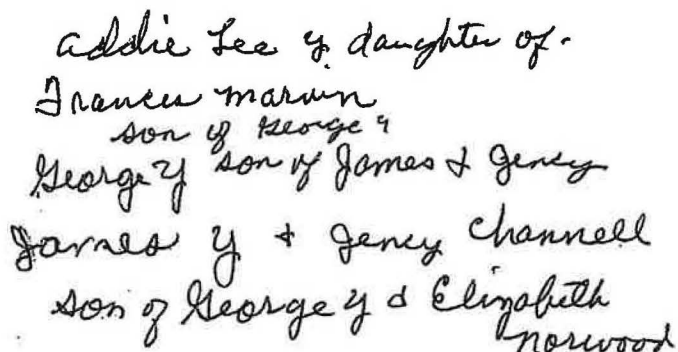 Addie Lee Y daughter of.
Frances Marvin
son of George Y
George Y son of James & Jency
James Y & Jency Channell
son of George Y & Elizabeth
Norwood